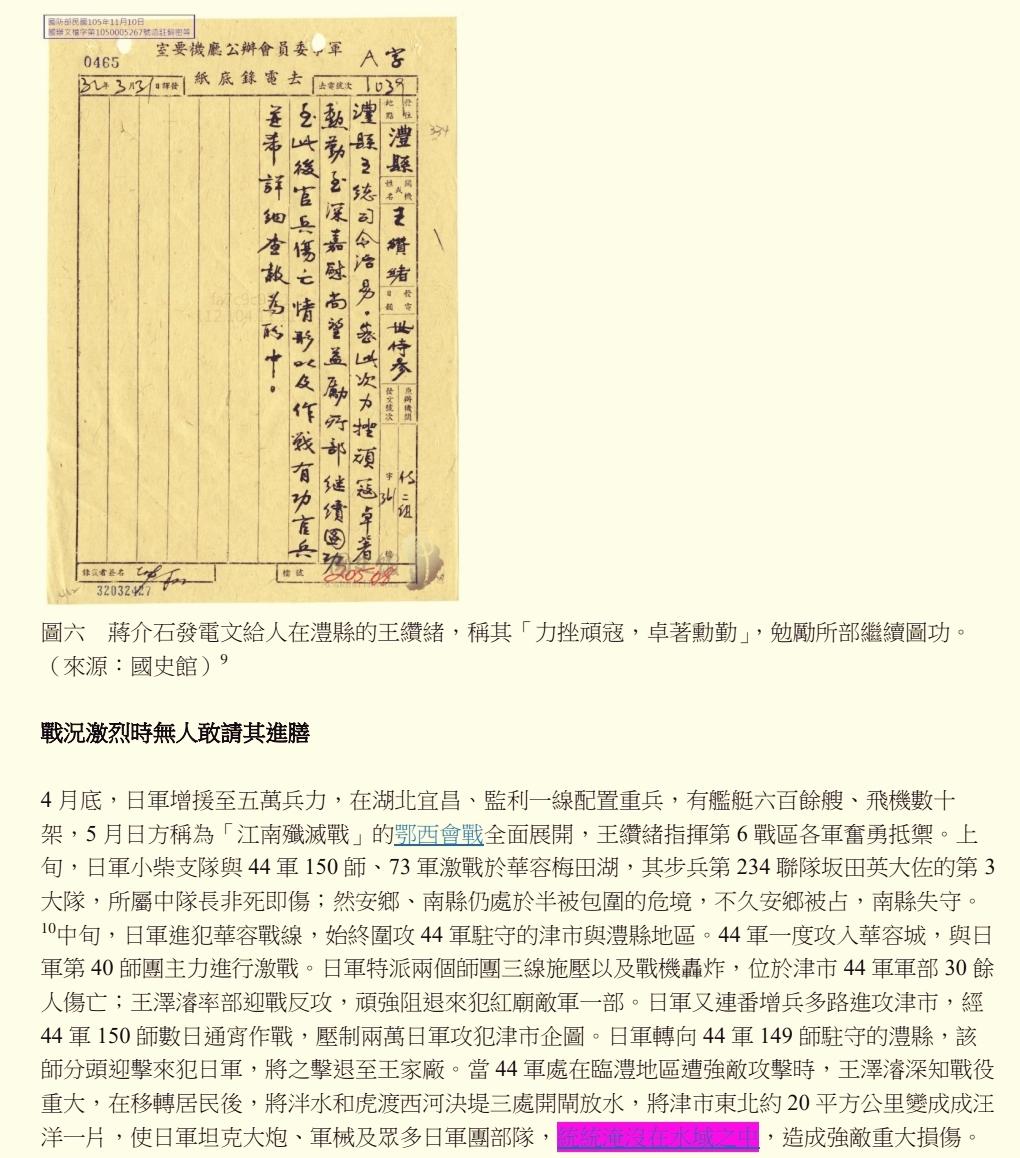 國防部民國105年11月10日
國辦文檔字第1050005267號函註銷密等
軍事委員會辦公廳機要室
A字
0465
去電錄底紙
32年3月31日譯發
去電號次 1039
發往地點 澧縣
關機或姓名 王纘緒
發電日韻 世侍參
原辦機關發文號次 侍二組
字 號
澧縣王總司令治易。密此次力挫頑寇卓著
勳勤至深嘉慰尚望益勵所部繼續圖功
至此後官兵傷亡情形以及作戰有功官兵
並希詳細查報為盼中。
錄底者簽名
檔號 20508
32032427
圖六　蔣介石發電文給人在澧縣的王纘緒，稱其「力挫頑寇，卓著勳勤」，勉勵所部繼續圖功。
（來源：國史館）9
戰況激烈時無人敢請其進膳
4 月底，日軍增援至五萬兵力，在湖北宜昌、監利一線配置重兵，有艦艇六百餘艘、飛機數十
架，5 月日方稱為「江南殲滅戰」的鄂西會戰全面展開，王纘緒指揮第 6 戰區各軍奮勇抵禦。上
旬，日軍小柴支隊與 44 軍 150 師、73 軍激戰於華容梅田湖，其步兵第 234 聯隊坂田英大佐的第 3
大隊，所屬中隊長非死即傷；然安鄉、南縣仍處於半被包圍的危境，不久安鄉被占，南縣失守。
10中旬，日軍進犯華容戰線，始終圍攻 44 軍駐守的津市與澧縣地區。44 軍一度攻入華容城，與日
軍第 40 師團主力進行激戰。日軍特派兩個師團三線施壓以及戰機轟炸，位於津市 44 軍軍部 30 餘
人傷亡；王澤濬率部迎戰反攻，頑強阻退來犯紅廟敵軍一部。日軍又連番增兵多路進攻津市，經
44 軍 150 師數日通宵作戰，壓制兩萬日軍攻犯津市企圖。日軍轉向 44 軍 149 師駐守的澧縣，該
師分頭迎擊來犯日軍，將之擊退至王家廠。當 44 軍處在臨澧地區遭強敵攻擊時，王澤濬深知戰役
重大，在移轉居民後，將泮水和虎渡西河決堤三處開閘放水，將津市東北約 20 平方公里變成成汪
洋一片，使日軍坦克大炮、軍械及眾多日軍團部隊，統統淹沒在水域之中，造成強敵重大損傷。